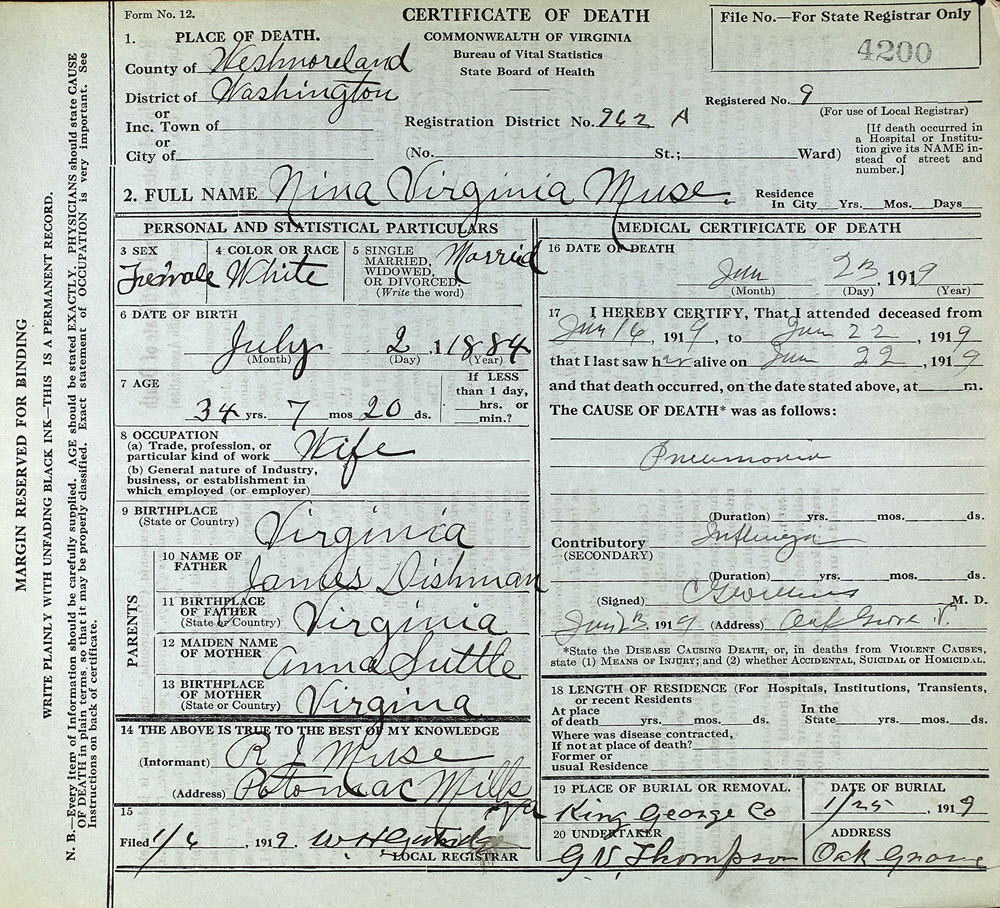 Form No. 12.
CERTIFICATE OF DEATH
COMMONWEALTH OF VIRGINIA
Bureau of Vital Statistics
State Board of Health
File No.—For State Registrar Only
4200
1. PLACE OF DEATH.
County of Westmoreland
District of Washington
or
Inc. Town of
or
City of
Registration District No. 962 A
Registered No. 9
(For use of Local Registrar)
(No. St.; Ward)
[If death occurred in
a Hospital or Institu-
tion give its NAME in-
stead of street and
number.]
2. FULL NAME Nina Virginia Muse.
Residence
In City Yrs. Mos. Days
PERSONAL AND STATISTICAL PARTICULARS
3 SEX
Female
4 COLOR OR RACE
White
5 SINGLE
MARRIED,
WIDOWED,
OR DIVORCED.
(Write the word)
Married
6 DATE OF BIRTH
July 2, 1884
(Month) (Day) (Year)
7 AGE
34 yrs. 7 mos 20 ds.
If LESS
than 1 day,
hrs. or
min.?
8 OCCUPATION
(a) Trade, profession, or
particular kind of work Wife
(b) General nature of Industry,
business, or establishment in
which employed (or employer)
9 BIRTHPLACE
(State or Country) Virginia
PARENTS
10 NAME OF
FATHER James Dishman
11 BIRTHPLACE
OF FATHER
(State or Country) Virginia
12 MAIDEN NAME
OF MOTHER Anna Suttle
13 BIRTHPLACE
OF MOTHER
(State or Country) Virginia
14 THE ABOVE IS TRUE TO THE BEST OF MY KNOWLEDGE
(Informant) R J Muse
(Address) Potomac Mills
Va
15
Filed 1/6, 1919 W H
LOCAL REGISTRAR
MEDICAL CERTIFICATE OF DEATH
16 DATE OF DEATH
Jan 23, 1919
(Month) (Day) (Year)
17 I HEREBY CERTIFY, That I attended deceased from
Jan 16, 1919, to Jan 22, 1919
that I last saw her alive on Jan 22, 1919
and that death occurred, on the date stated above, at m.
The CAUSE OF DEATH* was as follows:
Pneumonia
(Duration) yrs. mos. ds.
Contributory Influenza
(SECONDARY)
(Duration) yrs. mos. ds.
(Signed) M. D.
Jan 23, 1919 (Address) Oak Grove V.
*State the DISEASE CAUSING DEATH, or, in deaths from VIOLENT CAUSES,
state (1) MEANS OF INJURY; and (2) whether ACCIDENTAL, SUICIDAL or HOMICIDAL.
18 LENGTH OF RESIDENCE (For Hospitals, Institutions, Transients,
or recent Residents
At place In the
of death yrs. mos. ds. State yrs. mos. ds.
Where was disease contracted,
If not at place of death?
Former or
usual Residence
19 PLACE OF BURIAL OR REMOVAL.
King George Co
DATE OF BURIAL
1/25, 1919
20 UNDERTAKER
G V Thompson
ADDRESS
Oak Grove
MARGIN RESERVED FOR BINDING
WRITE PLAINLY WITH UNFADING BLACK INK—THIS IS A PERMANENT RECORD.
N. B.—Every item of information should be carefully supplied. AGE should be stated EXACTLY. PHYSICIANS should state CAUSE
OF DEATH in plain terms so that it may be properly classified. Exact statement of OCCUPATION is very important. See
Instructions on back of certificate.